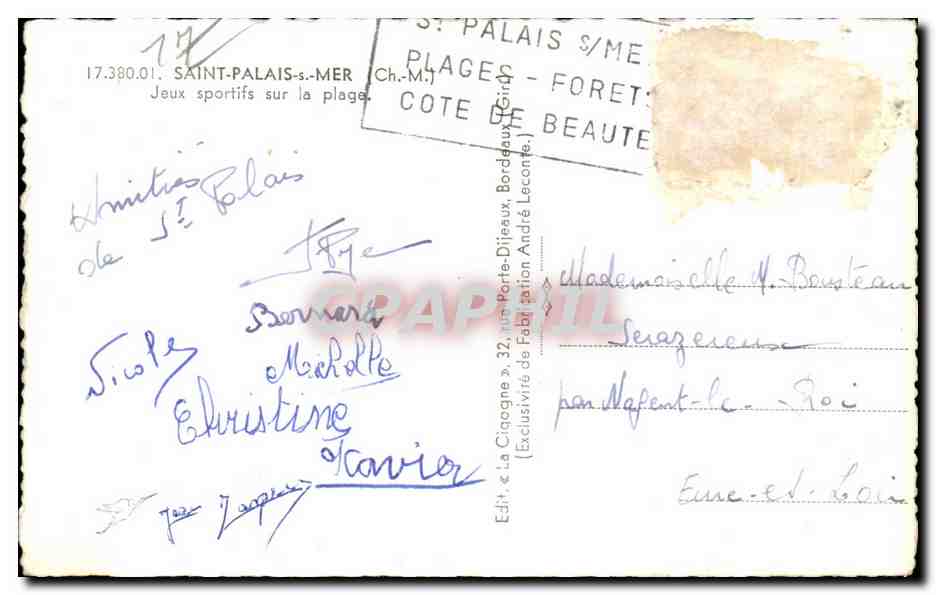 17
17.380.01. SAINT-PALAIS-s.-MER (Ch.-M.)
Jeux sportifs sur la plage.
St PALAIS S/ME
PLAGES - FORET
COTE DE BEAUTE
Amitiés
de St Palais
Bernard
Nicole
Michelle
Christine
Xavier
Jean Jacques
Edit. « La Cigogne », 32, rue Porte-Dijeaux, Bordeaux (Gir.)
(Exclusivité de Fabrication André Leconte.)
Mademoiselle M. Bousteau
Serazereux
par Nogent-le-Roi
Eure-et-Loir
CPAPHIL